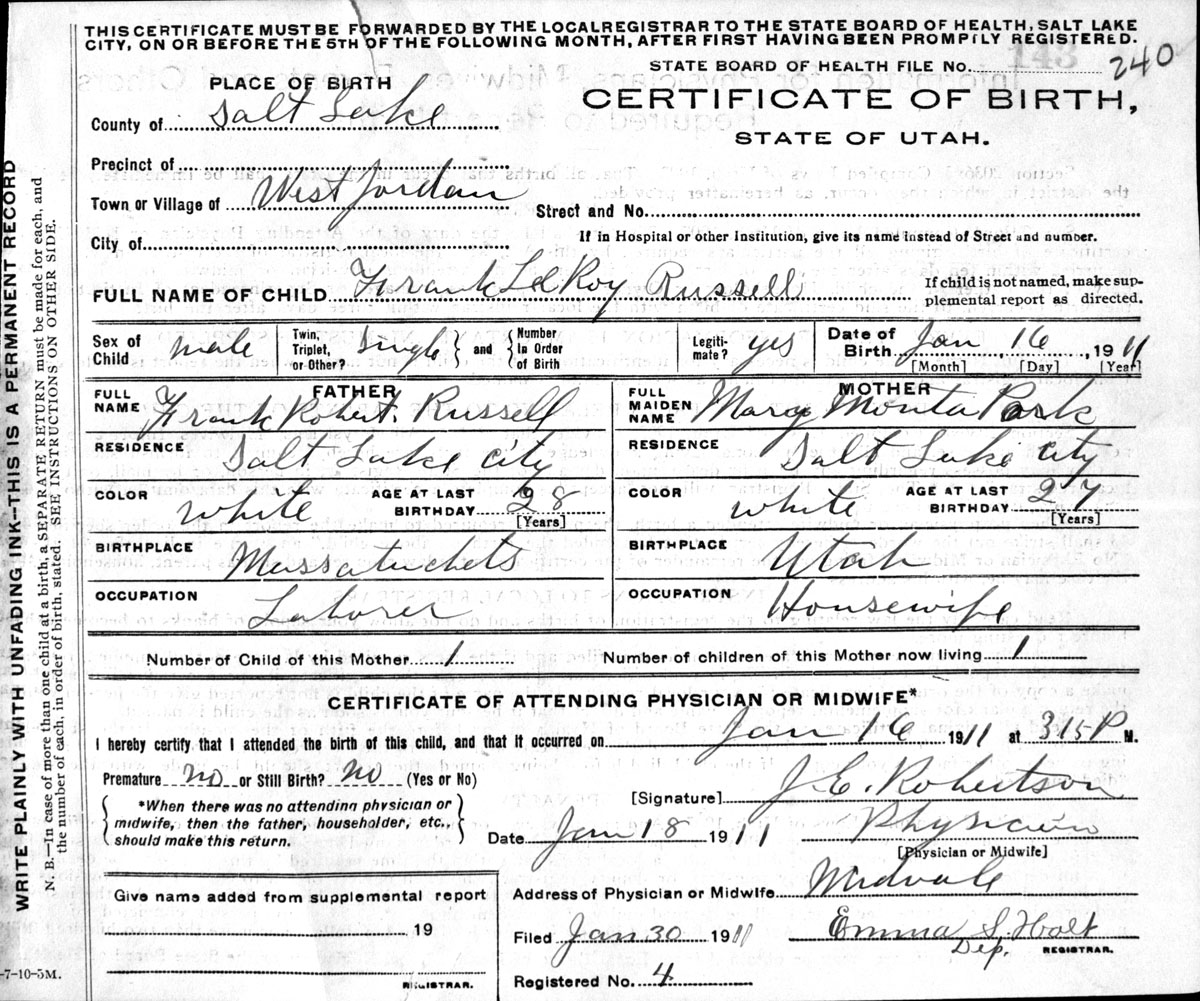 THIS CERTIFICATE MUST BE FORWARDED BY THE LOCAL REGISTRAR TO THE STATE BOARD OF HEALTH, SALT LAKE
CITY, ON OR BEFORE THE 5TH OF THE FOLLOWING MONTH, AFTER FIRST HAVING BEEN PROMPTLY REGISTERED.
STATE BOARD OF HEALTH FILE No. 143 240
PLACE OF BIRTH
CERTIFICATE OF BIRTH,
County of Salt Lake
STATE OF UTAH.
Precinct of
Town or Village of West Jordan
Street and No.
City of
If in Hospital or other Institution, give its name instead of Street and number.
FULL NAME OF CHILD Frank LeRoy Russell
If child is not named, make sup-
plemental report as directed.
Sex of Child male Twin, Triplet, or Other? Single and Number In Order of Birth Legiti-mate? yes Date of Birth Jan 16, 1911
[Month] [Day] [Year]
FATHER
FULL NAME Frank Robert Russell
RESIDENCE Salt Lake City
COLOR white AGE AT LAST BIRTHDAY 28
[Years]
BIRTHPLACE Massatuchets
OCCUPATION Laborer
MOTHER
FULL MAIDEN NAME Mary Monta Park
RESIDENCE Salt Lake City
COLOR white AGE AT LAST BIRTHDAY 27
[Years]
BIRTHPLACE Utah
OCCUPATION Housewife
Number of Child of this Mother 1 Number of children of this Mother now living 1
CERTIFICATE OF ATTENDING PHYSICIAN OR MIDWIFE*
I hereby certify that I attended the birth of this child, and that it occurred on Jan 16 1911 at 315 P M.
Premature no or Still Birth? No (Yes or No)
[Signature] J. E. Robertson
*When there was no attending physician or
midwife, then the father, householder, etc.,
should make this return.
Date Jan 18 1911 Physician
[Physician or Midwife]
Give name added from supplemental report
19
REGISTRAR.
Address of Physician or Midwife Midvale
Filed Jan 30 1911 Emma S. Holt
Dep. REGISTRAR.
Registered No. 4
-7-10-5M.
WRITE PLAINLY WITH UNFADING INK—THIS IS A PERMANENT RECORD
N. B.—In case of more than one child at a birth, a SEPARATE RETURN must be made for each, and
the number of each, in order of birth, stated. SEE INSTRUCTIONS ON OTHER SIDE.